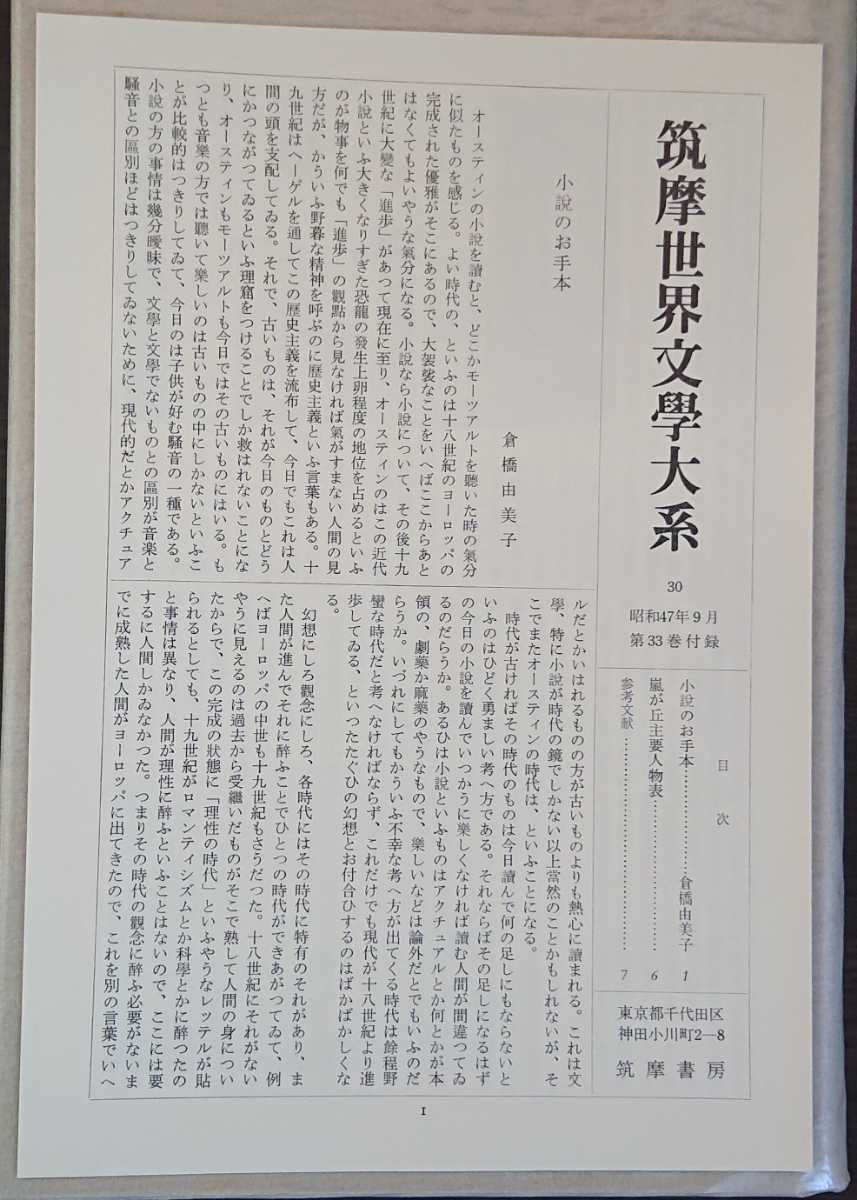 筑摩世界文學大系
30
昭和47年9月
第33巻付録
目次
小說のお手本…………………倉橋由美子 1
嵐が丘主要人物表…………………… 6
参考文献…………………………… 7
東京都千代田区
神田小川町2―8
筑摩書房
小說のお手本
倉橋由美子
オースティンの小說を讀むと、どこかモーツアルトを聽いた時の氣分
に似たものを感じる。よい時代の、といふのは十八世紀のヨーロッパの
完成された優雅がそこにあるので、大袈裟なことをいへばここからあと
はなくてもよいやうな氣分になる。小說なら小說について、その後十九
世紀に大變な「進歩」があつて現在に至り、オースティンのはこの近代
小說といふ大きくなりすぎた恐龍の發生上卵程度の地位を占めるといふ
のが物事を何でも「進歩」の觀點から見なければ氣がすまない人間の見
方だが、かういふ野暮な精神を呼ぶのに歷史主義といふ言葉もある。十
九世紀はヘーゲルを通してこの歷史主義を流布して、今日でもこれは人
間の頭を支配してゐる。それで、古いものは、それが今日のものとどう
にかつながつてゐるといふ理窟をつけることでしか救はれないことにな
り、オースティンもモーツアルトも今日ではその古いものにはいる。も
つとも音樂の方では聽いて樂しいのは古いものの中にしかないといふこ
とが比較的はつきりしてゐて、今日のは子供が好む騷音の一種である。
小說の方の事情は幾分曖昧で、文學と文學でないものとの區別が音楽と
騷音との區別ほどはつきりしてゐないために、現代的だとかアクチュア
ルだとかいはれるものの方が古いものよりも熱心に讀まれる。これは文
學、特に小說が時代の鏡でしかない以上當然のことかもしれないが、そ
こでまたオースティンの時代は、といふことになる。
時代が古ければその時代のものは今日讀んで何の足しにもならないと
いふのはひどく勇ましい考へ方である。それならばその足しになるはず
の今日の小說を讀んでいつかうに樂しくなければ讀む人間が間違つてゐ
るのだらうか。あるひは小說といふものはアクチュアルとか何とかが本
領の、劇藥か麻藥のやうなもので、樂しいなどは論外だとでもいふのだ
らうか。いづれにしてもかういふ不幸な考へ方が出てくる時代は餘程野
蠻な時代だと考へなければならず、これだけでも現代が十八世紀より進
歩してゐる、といつたたぐひの幻想とお付合ひするのはばかばかしくな
る。
幻想にしろ觀念にしろ、各時代にはその時代に特有のそれがあり、ま
た人間が進んでそれに醉ふことでひとつの時代ができあがつてゐて、例
へばヨーロッパの中世も十九世紀もさうだつた。十八世紀にそれがない
やうに見えるのは過去から受繼いだものがそこで熟して人間の身につい
たからで、この完成の狀態に「理性の時代」といふやうなレッテルが貼
られるとしても、十九世紀がロマンティシズムとか科學とかに醉つたの
と事情は異なり、人間が理性に醉ふといふことはないので、ここには要
するに人間しかゐなかつた。つまりその時代の觀念に醉ふ必要がないま
でに成熟した人間がヨーロッパに出てきたので、これを別の言葉でいへ
1